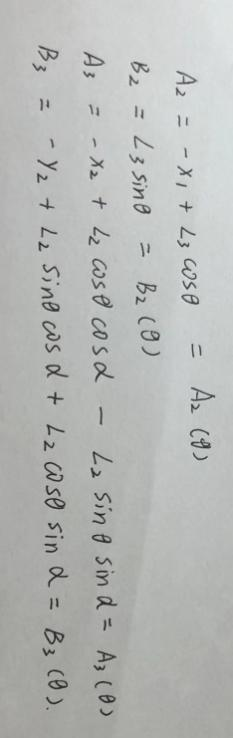 A₂ = -x₁ + L₃ cosθ = A₂(θ)
B₂ = L₃ sinθ = B₂(θ)
A₃ = -x₂ + L₂ cosθ cosα - L₂ sinθ sinα = A₃(θ)
B₃ = -y₂ + L₂ sinθ cosα + L₂ cosθ sinα = B₃(θ).